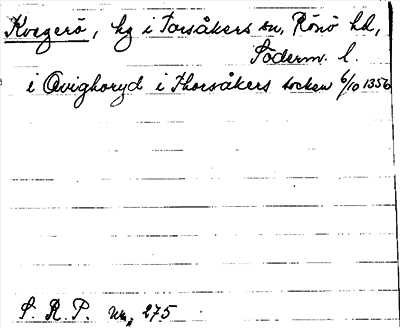 Kvegerö, hg i Torsåkers sn, Rönö hd,
Söderm. l.
i Qvighoryd i Thorsåkers socken 6/10 1356
S. R. P. nr, 275